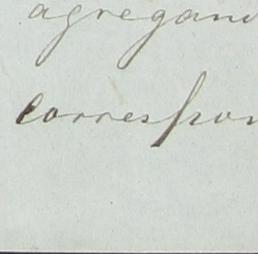 agregand
correspon